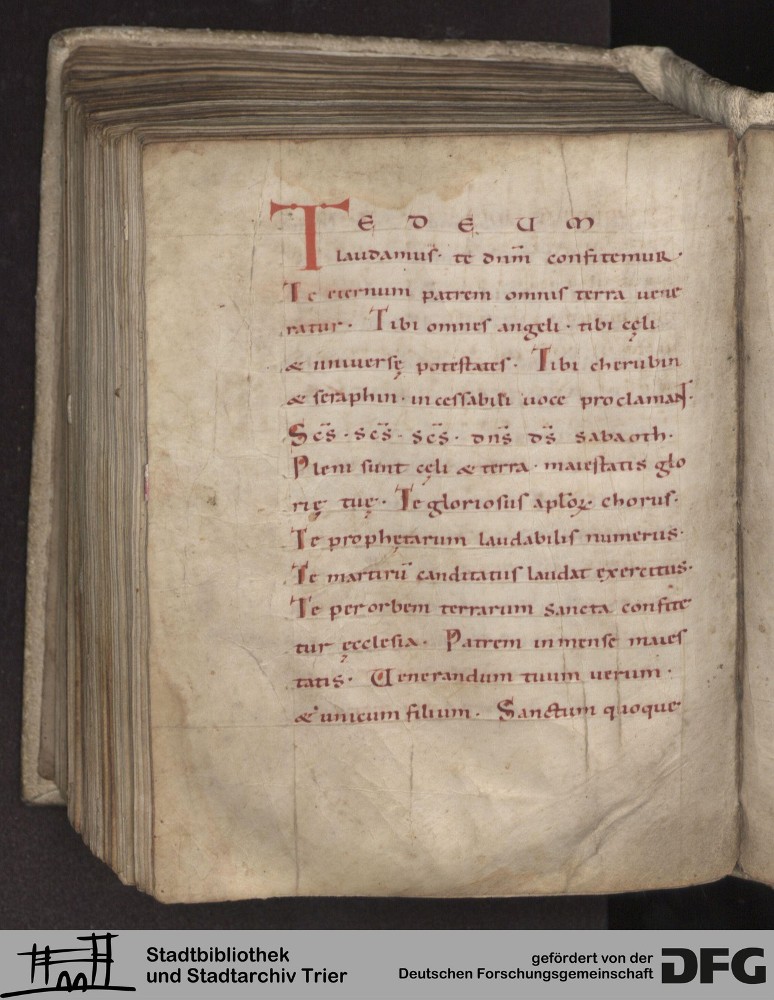 TE DEUM
laudamus· te dnm̄ confitemuR·
Te eternum patrem omnis terra uene
ratur· Tibi omnes angeli· tibi cęli
& uniuersę potestates· Tibi cherubin
& seraphin· incessabili uoce proclamant·
Scs̄· scs̄· scs̄· dns̄ ds̄ sabaoth·
Pleni sunt cęli & terra· maiestatis glo
rię tuę· Te gloriosus aplōꝝ chorus·
Te prophętarum laudabilis numerus·
Te martirū canditatus laudat exercitus·
Te per orbem terrarum sancta confite
tur ęcclesia· Patrem inmense maies
tatis· Uenerandum tuum uerum·
& unicum filium· Sanctum quoque
Stadtbibliothek
und Stadtarchiv Trier
gefördert von der
Deutschen Forschungsgemeinschaft DFG